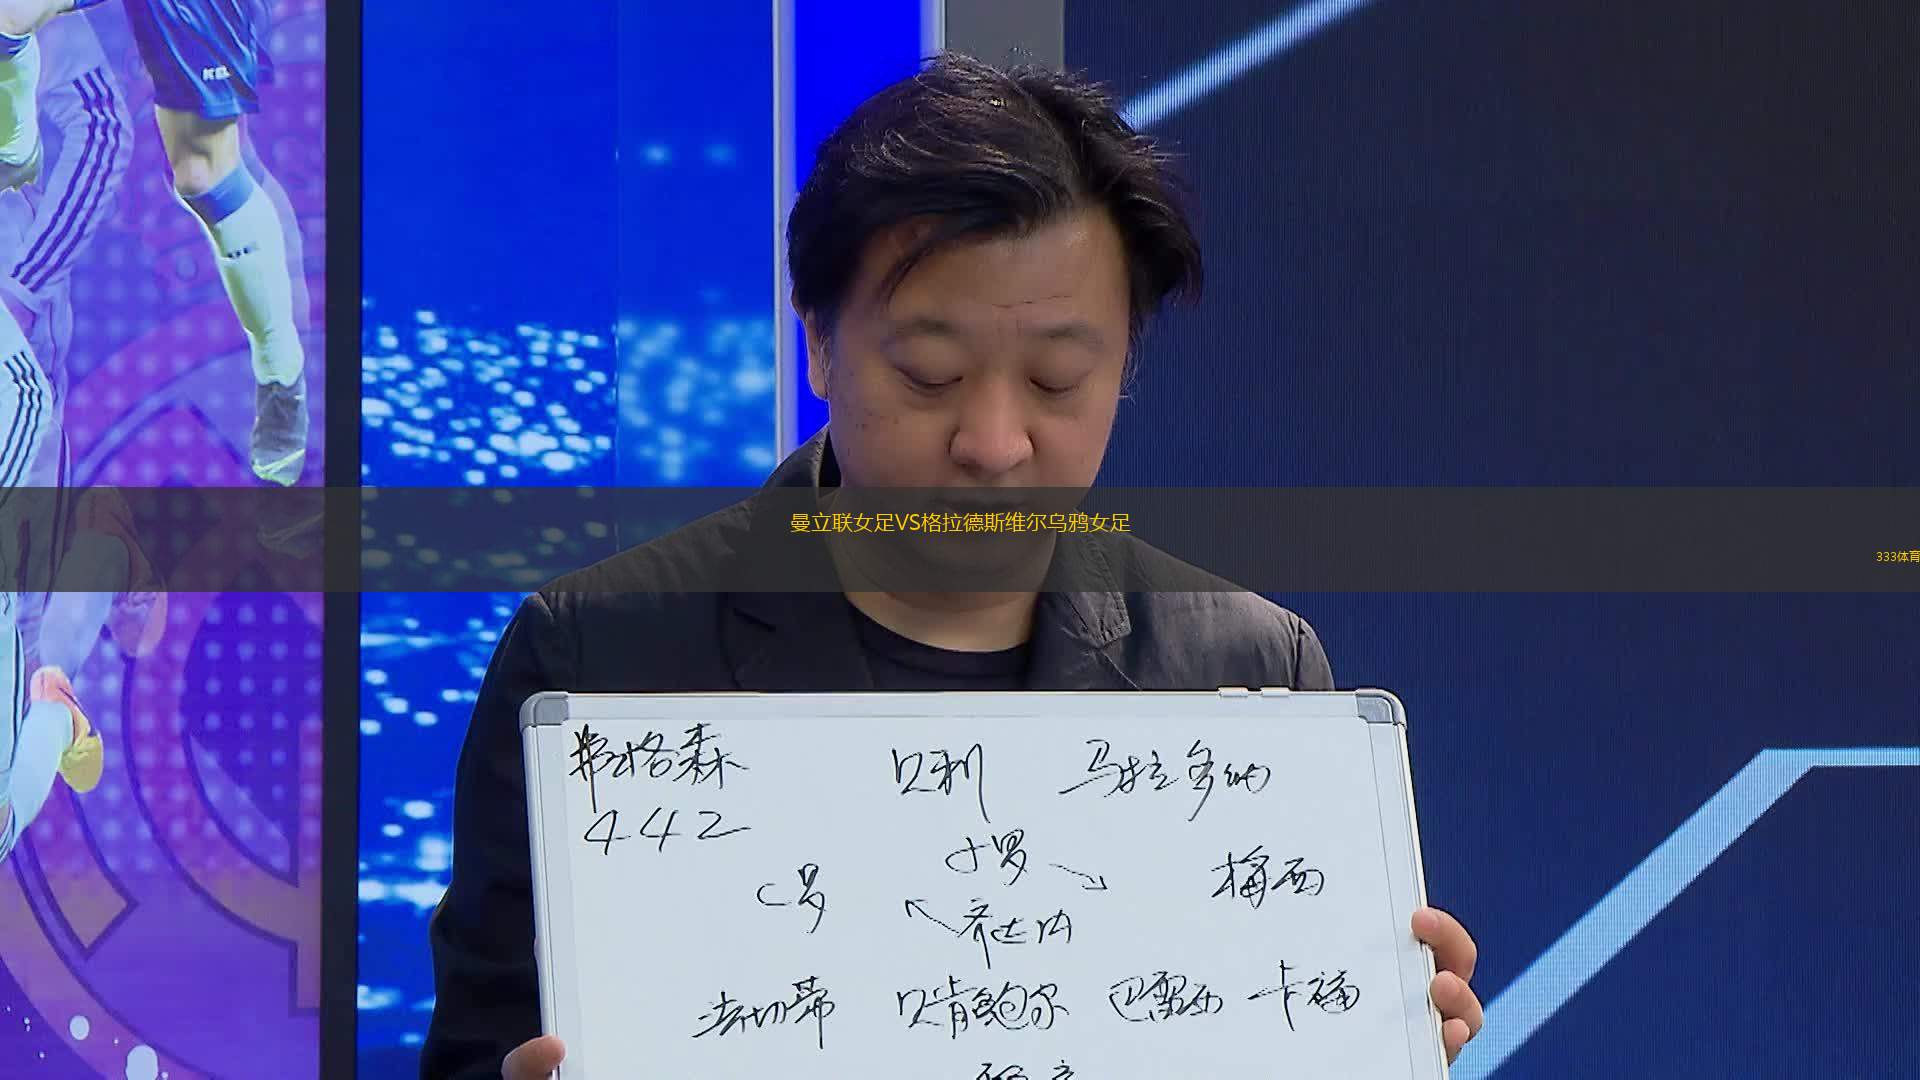 KEL
曼立联女足VS格拉德斯维尔乌鸦女足
333体育
弗格森 贝利 马拉多纳
442
小罗
C罗 梅西
齐达内
法切蒂 贝肯鲍尔 巴雷西 卡福